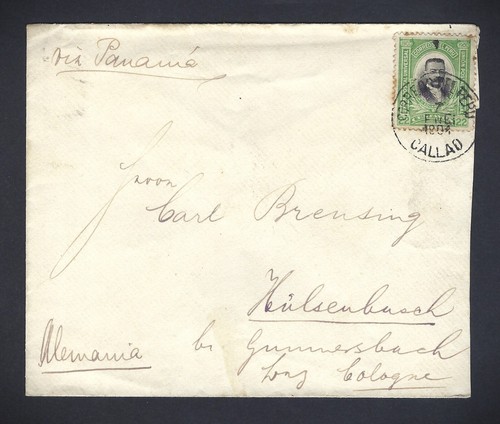 via Panamá
22
CORREOS PERU
7
ENE
1904
CALLAO
Herrn
Carl Brensing
Hülsenbusch
Alemania bei Gummersbach
Cologne